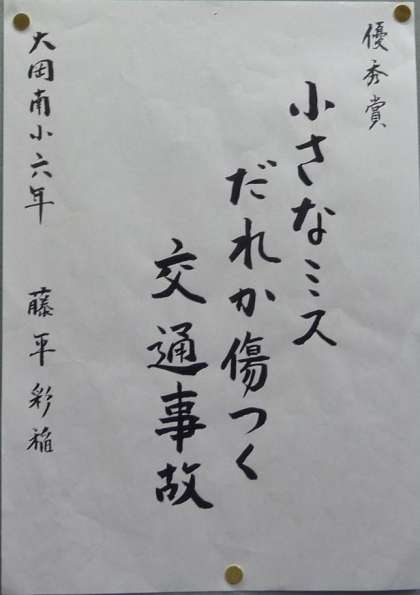 優秀賞
小さなミス
だれか傷つく
交通事故
大岡南小六年 藤平彩稲